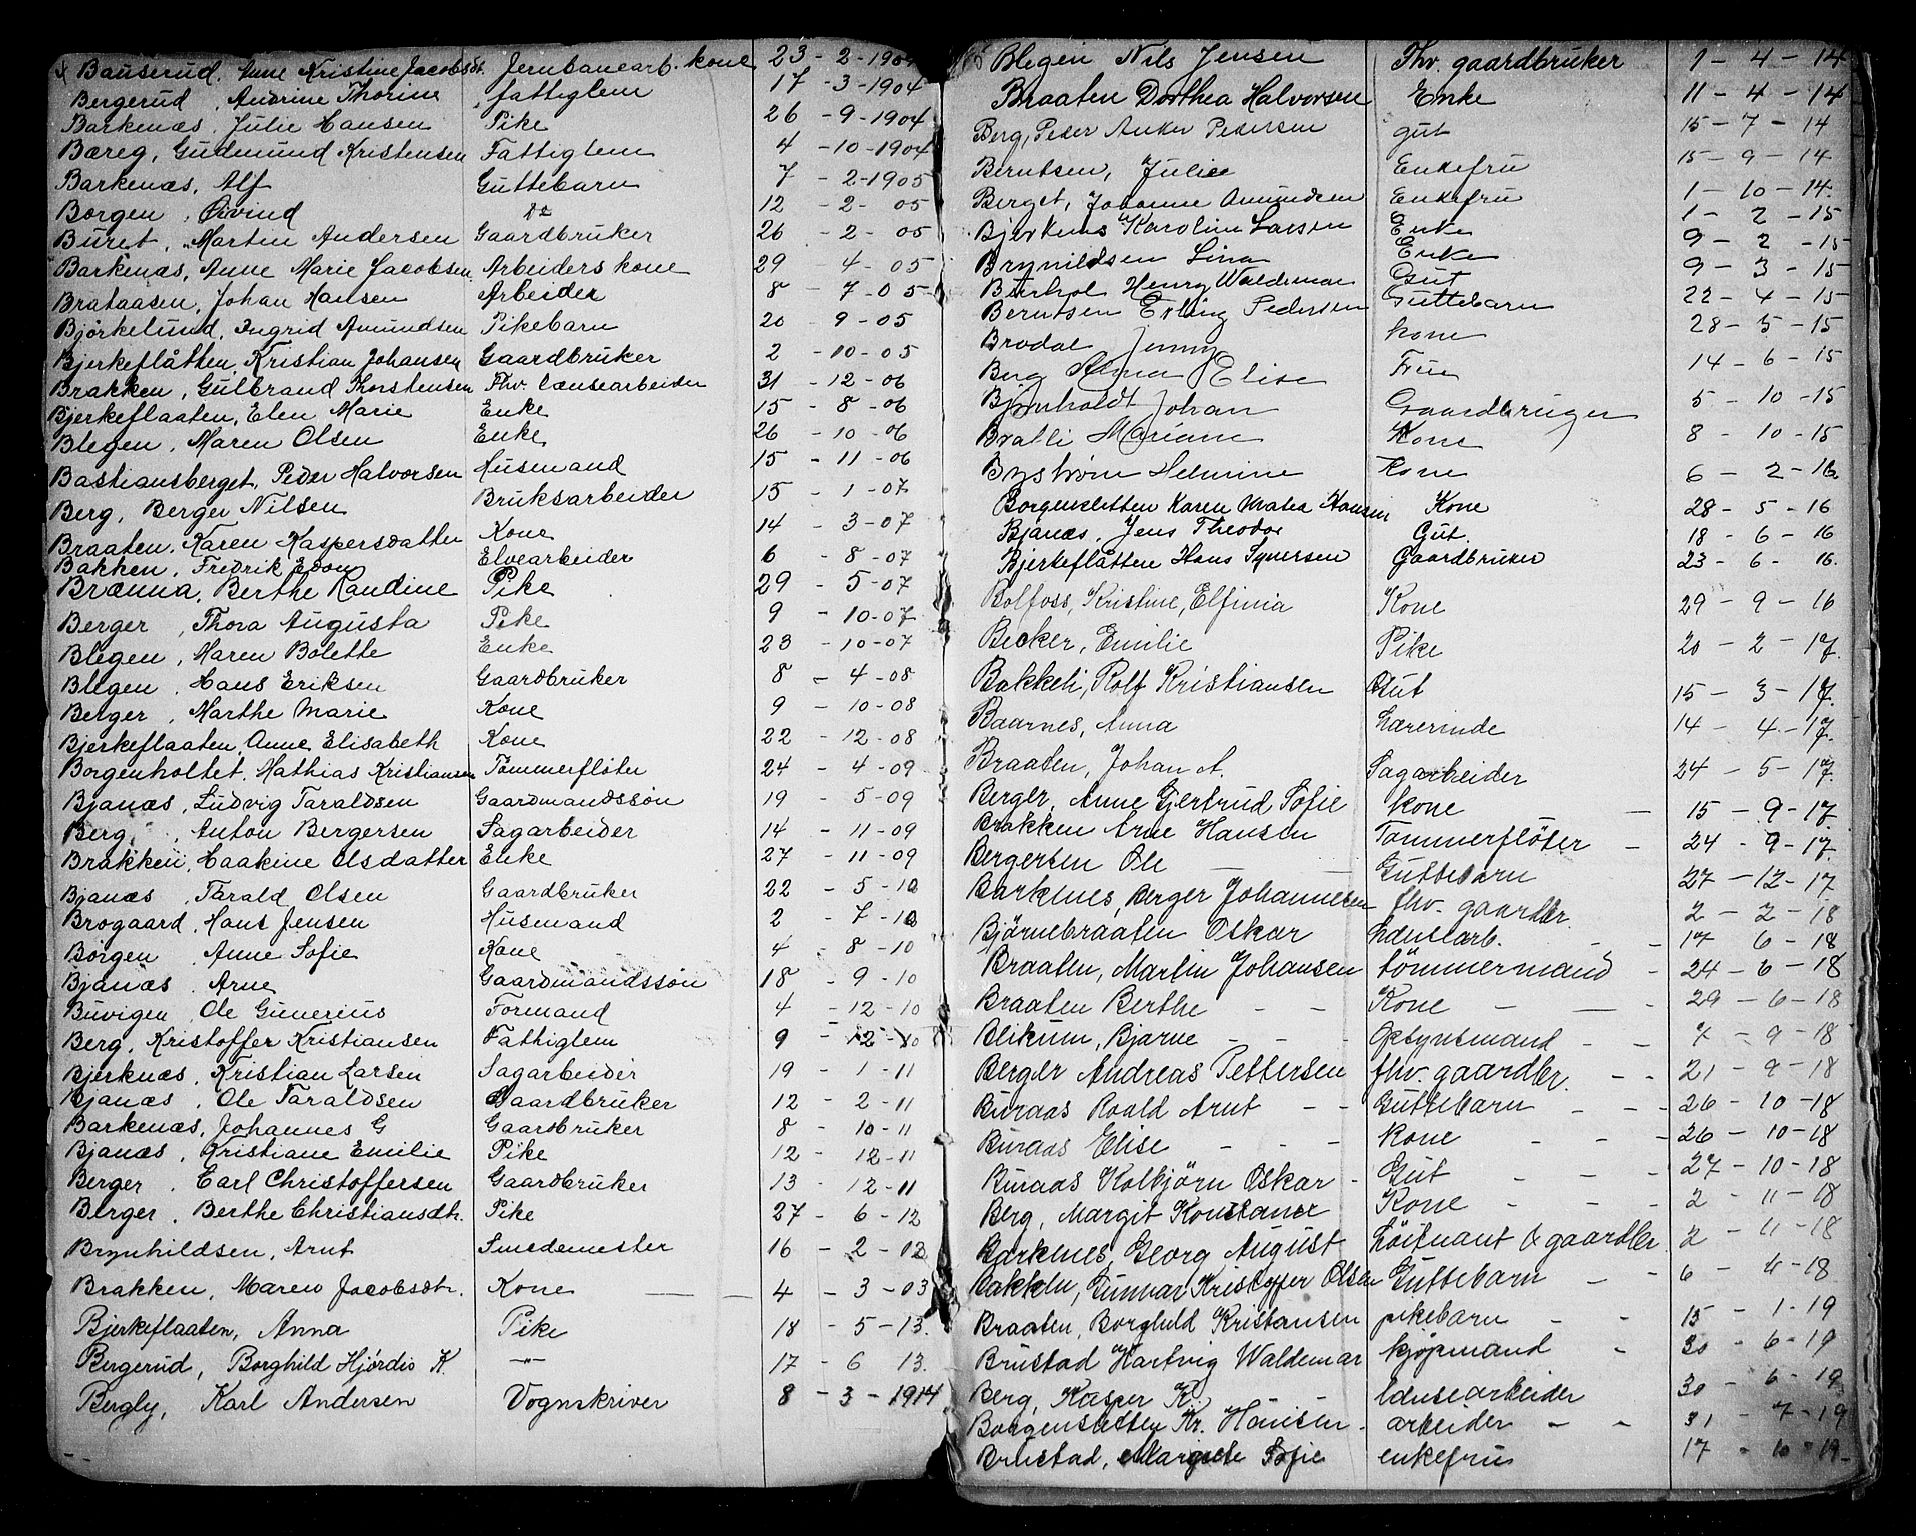 Bauserud, Anne Kristine Jacobsdt. Jernbanearb. kone 23 - 2 - 1904
Bergerud, Andrine Thorine fattiglem 17 - 3 - 1904
Barkenæs, Julie Hansen Pike 26 - 9 - 1904
Bæreg, Gudmund Kristensen Fattiglem 4 - 10 - 1904
Barkenæs, Alf Guttebarn 7 - 2 - 1905
Borgen, Øivind do 12 - 2 - 05
Buret, Martin Andersen Gaardbruker 26 - 2 - 05
Barkenæs, Anne Marie Jacobsen Arbeiders kone 29 4 - 05
Brataasen, Johan Hansen Arbeider 8 - 7 - 05
Björkelund, Ingrid Amundsen Pikebarn 20 9 - 05
Bjerkeflåtten, Kristian Johansen Gaardbruker 2 - 10 - 05
Brakken, Gulbrand Thorstensen Fhv. lænsearbeider 31 - 12 - 06
Bjerkeflaaten, Elen Marie Enke 15 8 - 06
Blegen, Maren Olsen Enke 26 - 10 - 06
Bastiansberget, Peder Halvorsen Husmand 15 - 11 - 06
Berg, Berger Nilsen Bruksarbeider 15 - 1 - 07
Braaten, Karen Kaspersdatter Kone 14 - 3 - 07
Bakken, Fredrik Edon Elvearbeider 6 - 8 - 07
Brænna, Berthe Randine Pike 29 - 5 - 07
Berger, Thora Augusta Pike 9 - 10 - 07
Blegen, Maren Bolette Enke 23 - 10 - 07
Blegen, Hans Eriksen Gaardbruker 8 - 4 - 08
Berger, Marthe Marie Kone 9 - 10 - 08
Bjerkeflaaten, Anne Elisabeth Kone 22 - 12 - 08
Borgenholtet, Mathias Kristiansen Tömmerfløter 24 - 4 - 09
Bjanæs, Ludvig Taraldsen Gaardmandssön 19 - 5 - 09
Berg, Anton Bergersen Sagarbeider 14 - 11 - 09
Brakken, Haakine Olsdatter Enke 27 - 11 - 09
Bjanæs, Tarald Olsen Gaardbruker 22 - 5 - 10
Brogaard, Hans Jensen Husmand 2 - 7 - 10
Borgen, Anne Sofie Kone 4 - 8 - 10
Bjanæs, Arne Gaardmandssön 18 - 9 - 10
Buvigen, Ole Gunerius Formand 4 - 12 - 10
Berg, Kristoffer Kristiansen Fathiglem 9 - 12 - 10
Bjerknæs, Kristian Larsen Sagarbeider 19 - 1 - 11
Bjanæs, Ole Taraldsen Gaardbruker 12 - 2 - 11
Barkenæs, Johannes G Gaardbruker 8 - 10 - 11
Bjanæs, Kristiane Emilie Pike 12 - 12 - 11
Berger, Carl Christoffersen Gaardbruker 13 - 12 - 11
Berger, Berthe Christiansdtr. Pike 27 - 6 - 12
Brynhildsen, Arnt Smedemester 16 - 2 - 02
Brakken, Maren Jacobsdtr. Kone 4 - 3 - 03
Bjerkeflaaten, Anna Pike 18 - 5 - 13.
Bergerud, Borghild Hjördis K. -"- 17 - 6 13.
Bergly, Karl Andersen Vognskriver 8 - 3 - 1914
Blegen Nils Jensen Fhv. gaardbruker 1 - 4 - 14
Braaten Dorthea Halvorsen Enke 11 - 4 - 14
Berg, Peder Anker Pedersen gut 15 - 7 - 14
Berntsen, Julie Enkefru 15 - 9 - 14
Berget, Johanne Amundsen Enkefru 1 - 10 - 14.
Bjerknes Karoline Larsen Enke 1 - 2 - 15
Brynildsen Lina Enke 9 - 2 - 15
Henry Waldemar Gut 9 - 3 - 15
Berntsen Erling Pedersen Guttebarn 22 - 4 - 15
Brodal Jenny kone 28 - 5 - 15
Berg Anna Elise Frue 14 - 6 - 15
Björnholdt Johan Gaardbruger 5 - 10 - 15
Bralli Mariane Kone 8 - 10 - 15
Byström Helmine Kone 6 - 2 - 16
Borgensletten Karen Mathea Hansen Kone 28 - 5 - 16
Bjanæs, Jens Theodor Gut. 18 - 6 - 16
Bjerkeflåtten Hans Syversen Gaardbruker 23 - 6 - 16.
Bolfoss, Kristine, Elfinia Kone 29 - 9 - 16
Becker, Emilie Pike 20 - 2 - 17.
Bakkeli, Rolf Kristiansen Gut 15 - 3 - 17.
Baarnes, Anna Lærerinde 14 - 4 - 17.
Braaten, Johan A. Sagarbeider 24 - 5 - 17.
Berger, Anne Gjertrud Sofie kone 15 - 9 - 17.
Brakken Arne Hansen Tömmerflöter - 24 - 9 - 17.
Bergersen Ole Guttebarn 27 - 12 - 17
Barknes, Berger Johannesen fhv. gaardbr. 2 - 2 - 18
Bjørnebraaten Oskar Lænsearb. 17 6 - 18
Braaten, Martin Johansen tömmermand - 24 - 6 - 18
Braaten Berthe - - Kone - 29 - 6 - 18
Blikum, Bjarne - - - Opsynsmand - - 7 - 9 - 18
Berger Andreas Pettersen fhv. gaardbr. - - 21 - 9 - 18
Buraas Roald Arnt - - Guttebarn - - 26 - 10 - 18
Buraas Elise - - - kone - - - 26 - 10 - 18
Buraas Kolbjörn Oskar - Gut - - 27 - 10 - 18
Berg, Margit Konstance Kone - - - 2 - 11 - 18
Barknes, Georg August Löitnant & gaardbr. 2 - 11 - 18
Bakken, Gunvar Kristoffer Olsen Guttebarn - - 6 - 4 - 18
Braaten, Borghild Kristansen pikebarn - - 15 - 1 - 19
Brustad Hartvig Waldemar kjøpmand - 30 - 6 - 19
Berg, Kasper K. - - lænsearbeider 30 - 6 - 19
Borgensletten Kr. Hansen - arbeider - - 31 - 7 - 19
Brustad, Margrete Sofie enkefru 17 - 10 - 19